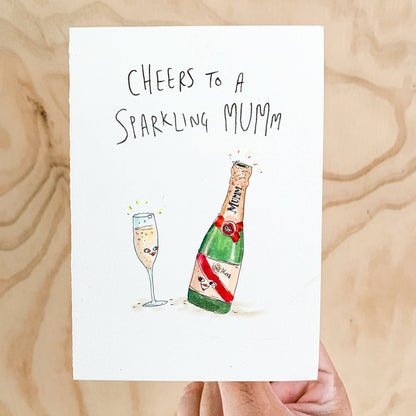 CHEERS TO A
SPARKLING MUMM
MUMM